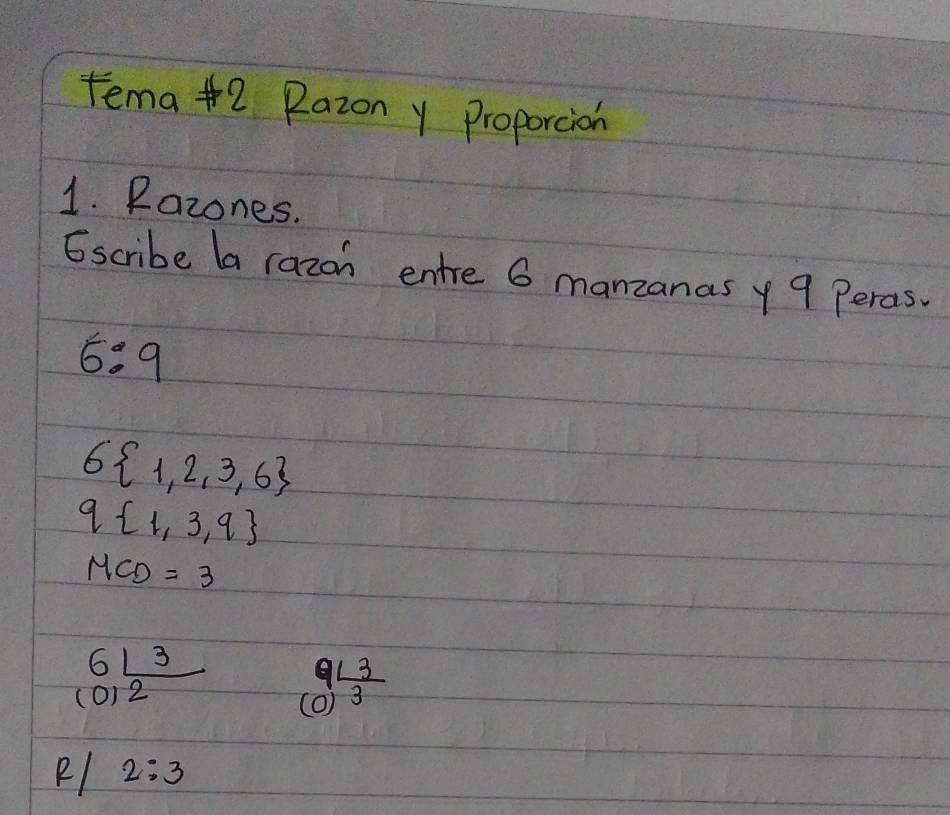 Tema #2 Razon y Proporción
1. Razones.
Escribe la razón entre 6 manzanas y 9 Peras.
6:9
6{1,2,3,6}
9{1,3,9}
MCD = 3
6 3 9 3
(0) 2 (0) 3
R/ 2:3